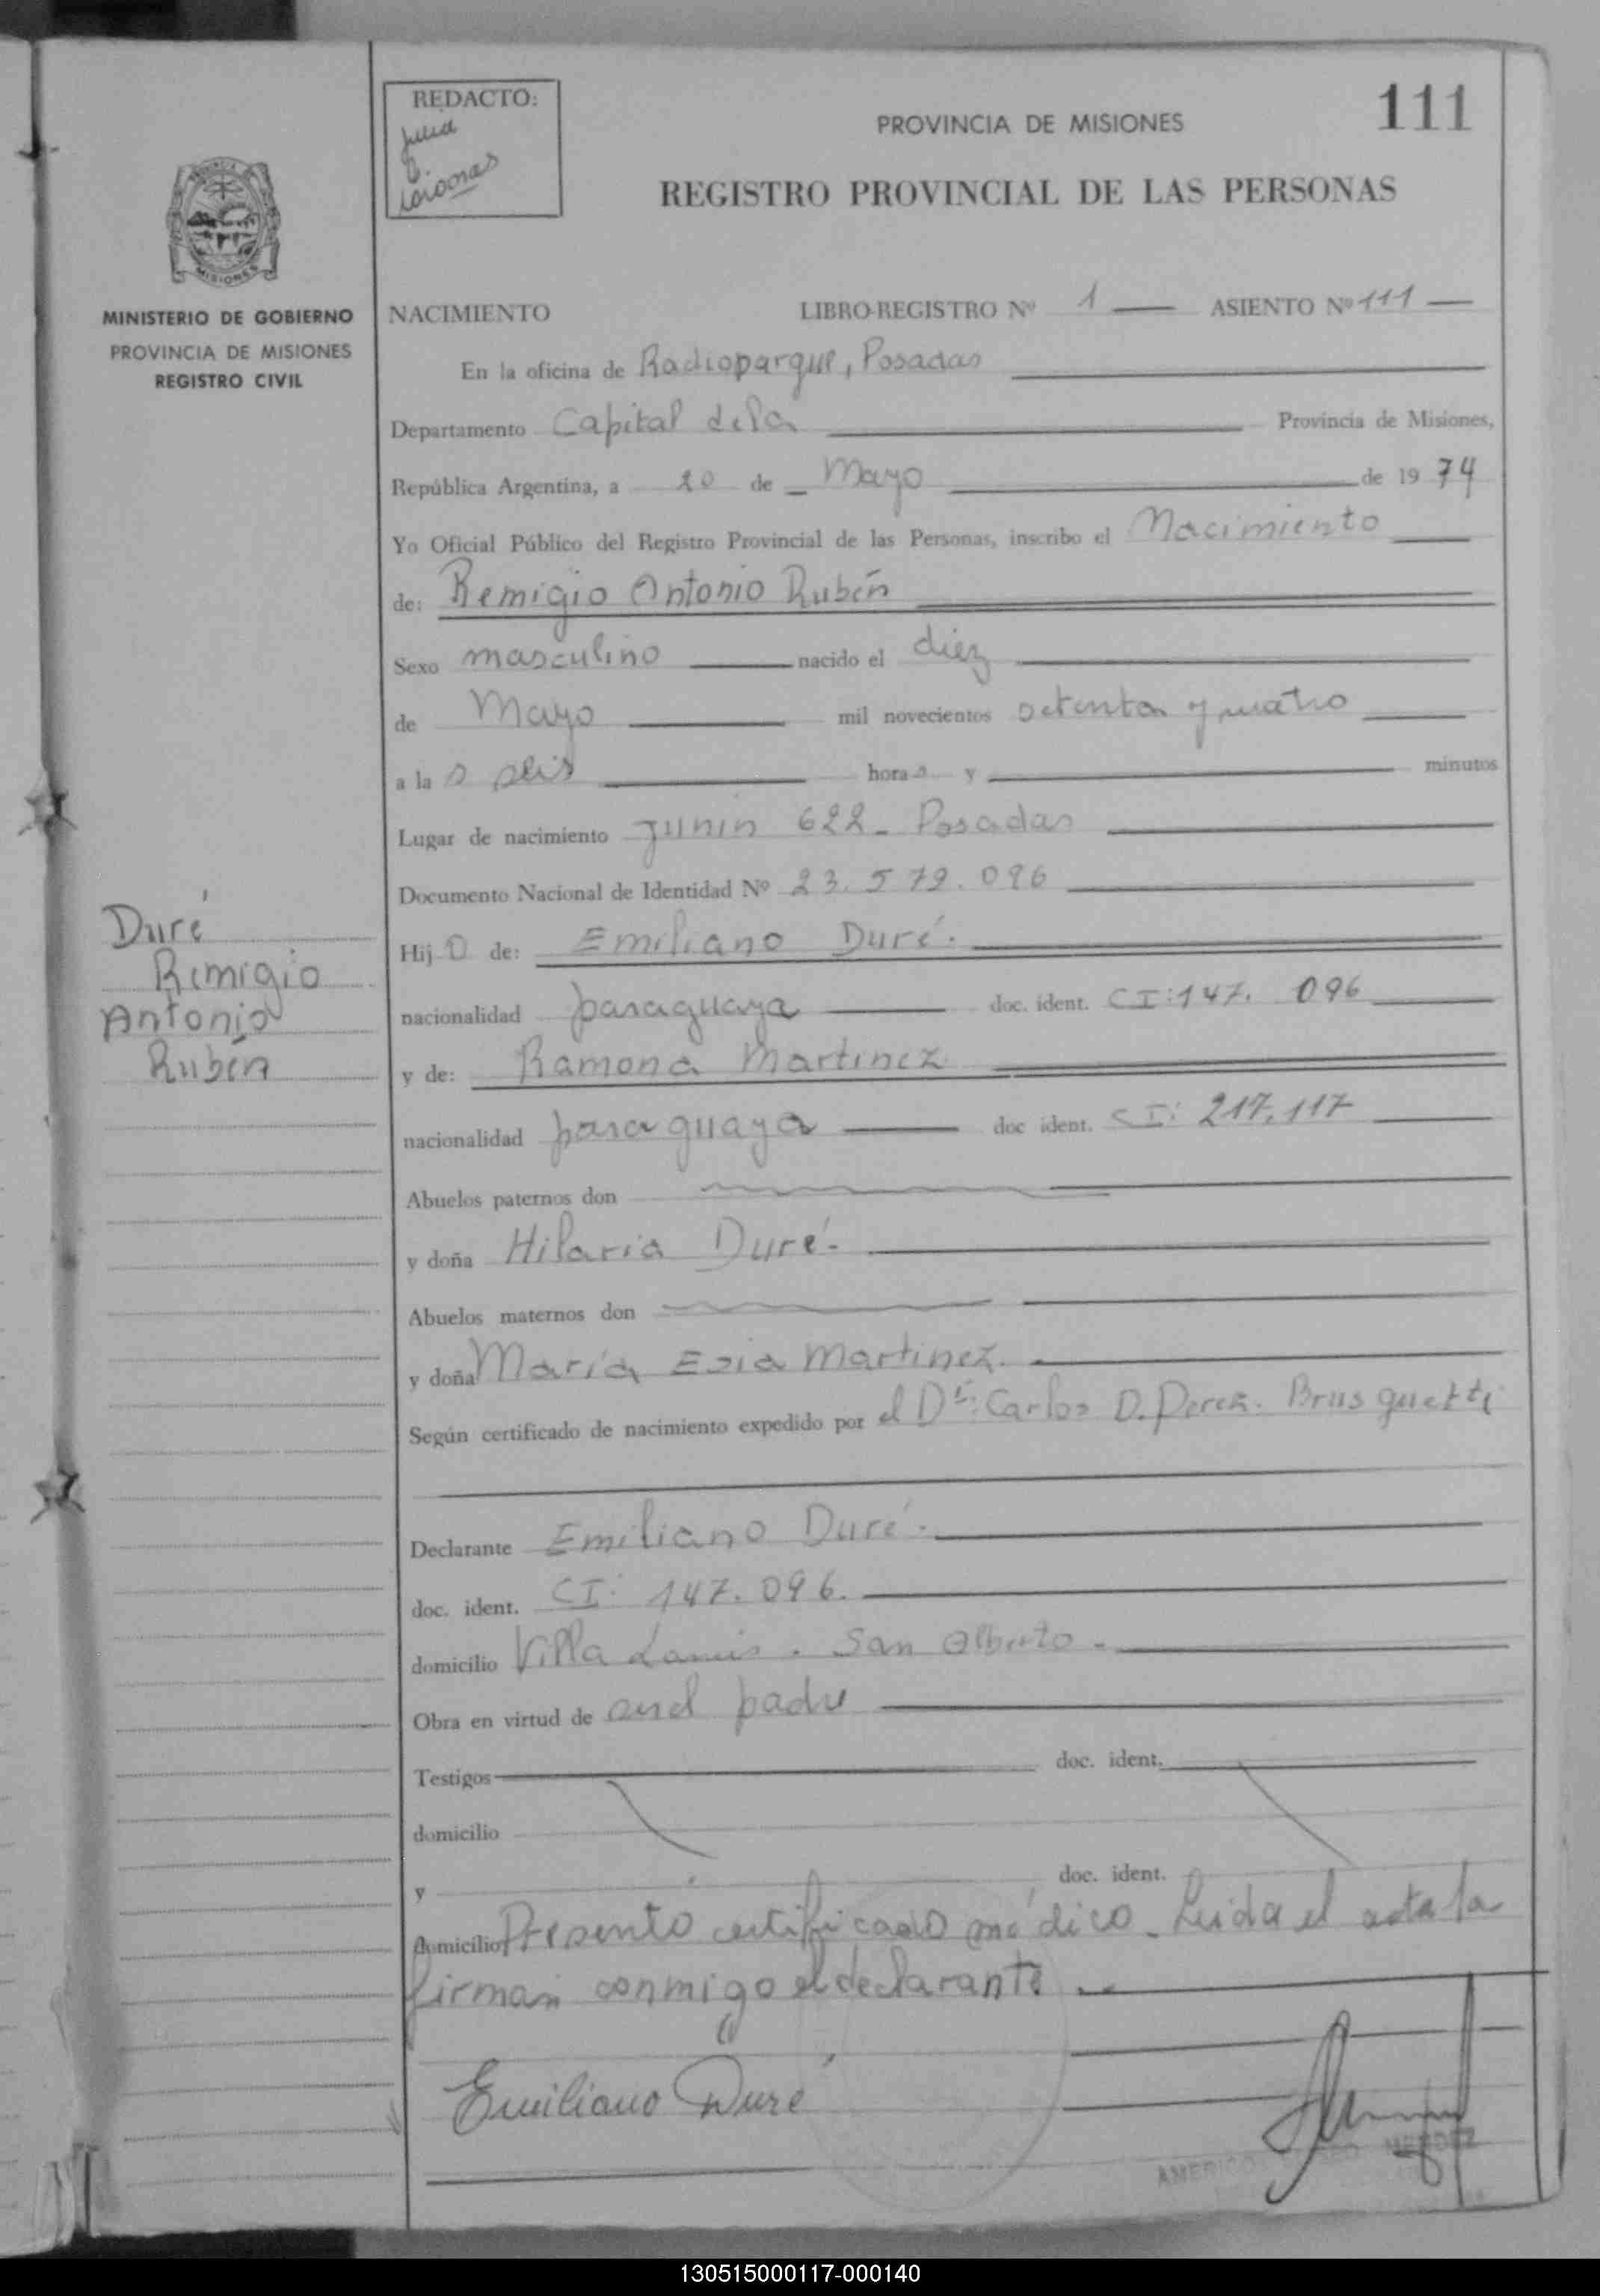 REDACTO:
Julia
PROVINCIA DE MISIONES
111
REGISTRO PROVINCIAL DE LAS PERSONAS
MISIONES
MINISTERIO DE GOBIERNO
PROVINCIA DE MISIONES
REGISTRO CIVIL
NACIMIENTO LIBRO-REGISTRO Nº 1 ASIENTO Nº 111
En la oficina de Radioparque, Posadas
Departamento Capital de la Provincia de Misiones,
República Argentina, a 20 de Mayo de 1974
Yo Oficial Público del Registro Provincial de las Personas, inscribo el Nacimiento
de: Remigio Antonio Rubén
Sexo masculino nacido el diez
de Mayo mil novecientos setenta y cuatro
a la s seis hora s y minutos
Lugar de nacimiento Junin 622 - Posadas
Documento Nacional de Identidad Nº 23.579.096
Duré
Remigio
Antonio
Rubén
Hij o de: Emiliano Duré.
nacionalidad paraguaya doc. ident. CI: 147.096
y de: Ramona Martinez
nacionalidad paraguaya doc ident. CI: 217.117
Abuelos paternos don
y doña Hilaria Duré.
Abuelos maternos don
y doña María Martinez.
Según certificado de nacimiento expedido por el Dr: Carlos D. Perez. Brusquetti
Declarante Emiliano Duré.
doc. ident. CI: 147.096.
domicilio Villa Lanús. San Alberto -
Obra en virtud de ser el padre
Testigos doc. ident.
domicilio
y doc. ident.
domicilio Presentó certificado médico. Leida el acta la
firman conmigo el declarante
Emiliano Duré
AMERICO MENDEZ
130515000117-000140